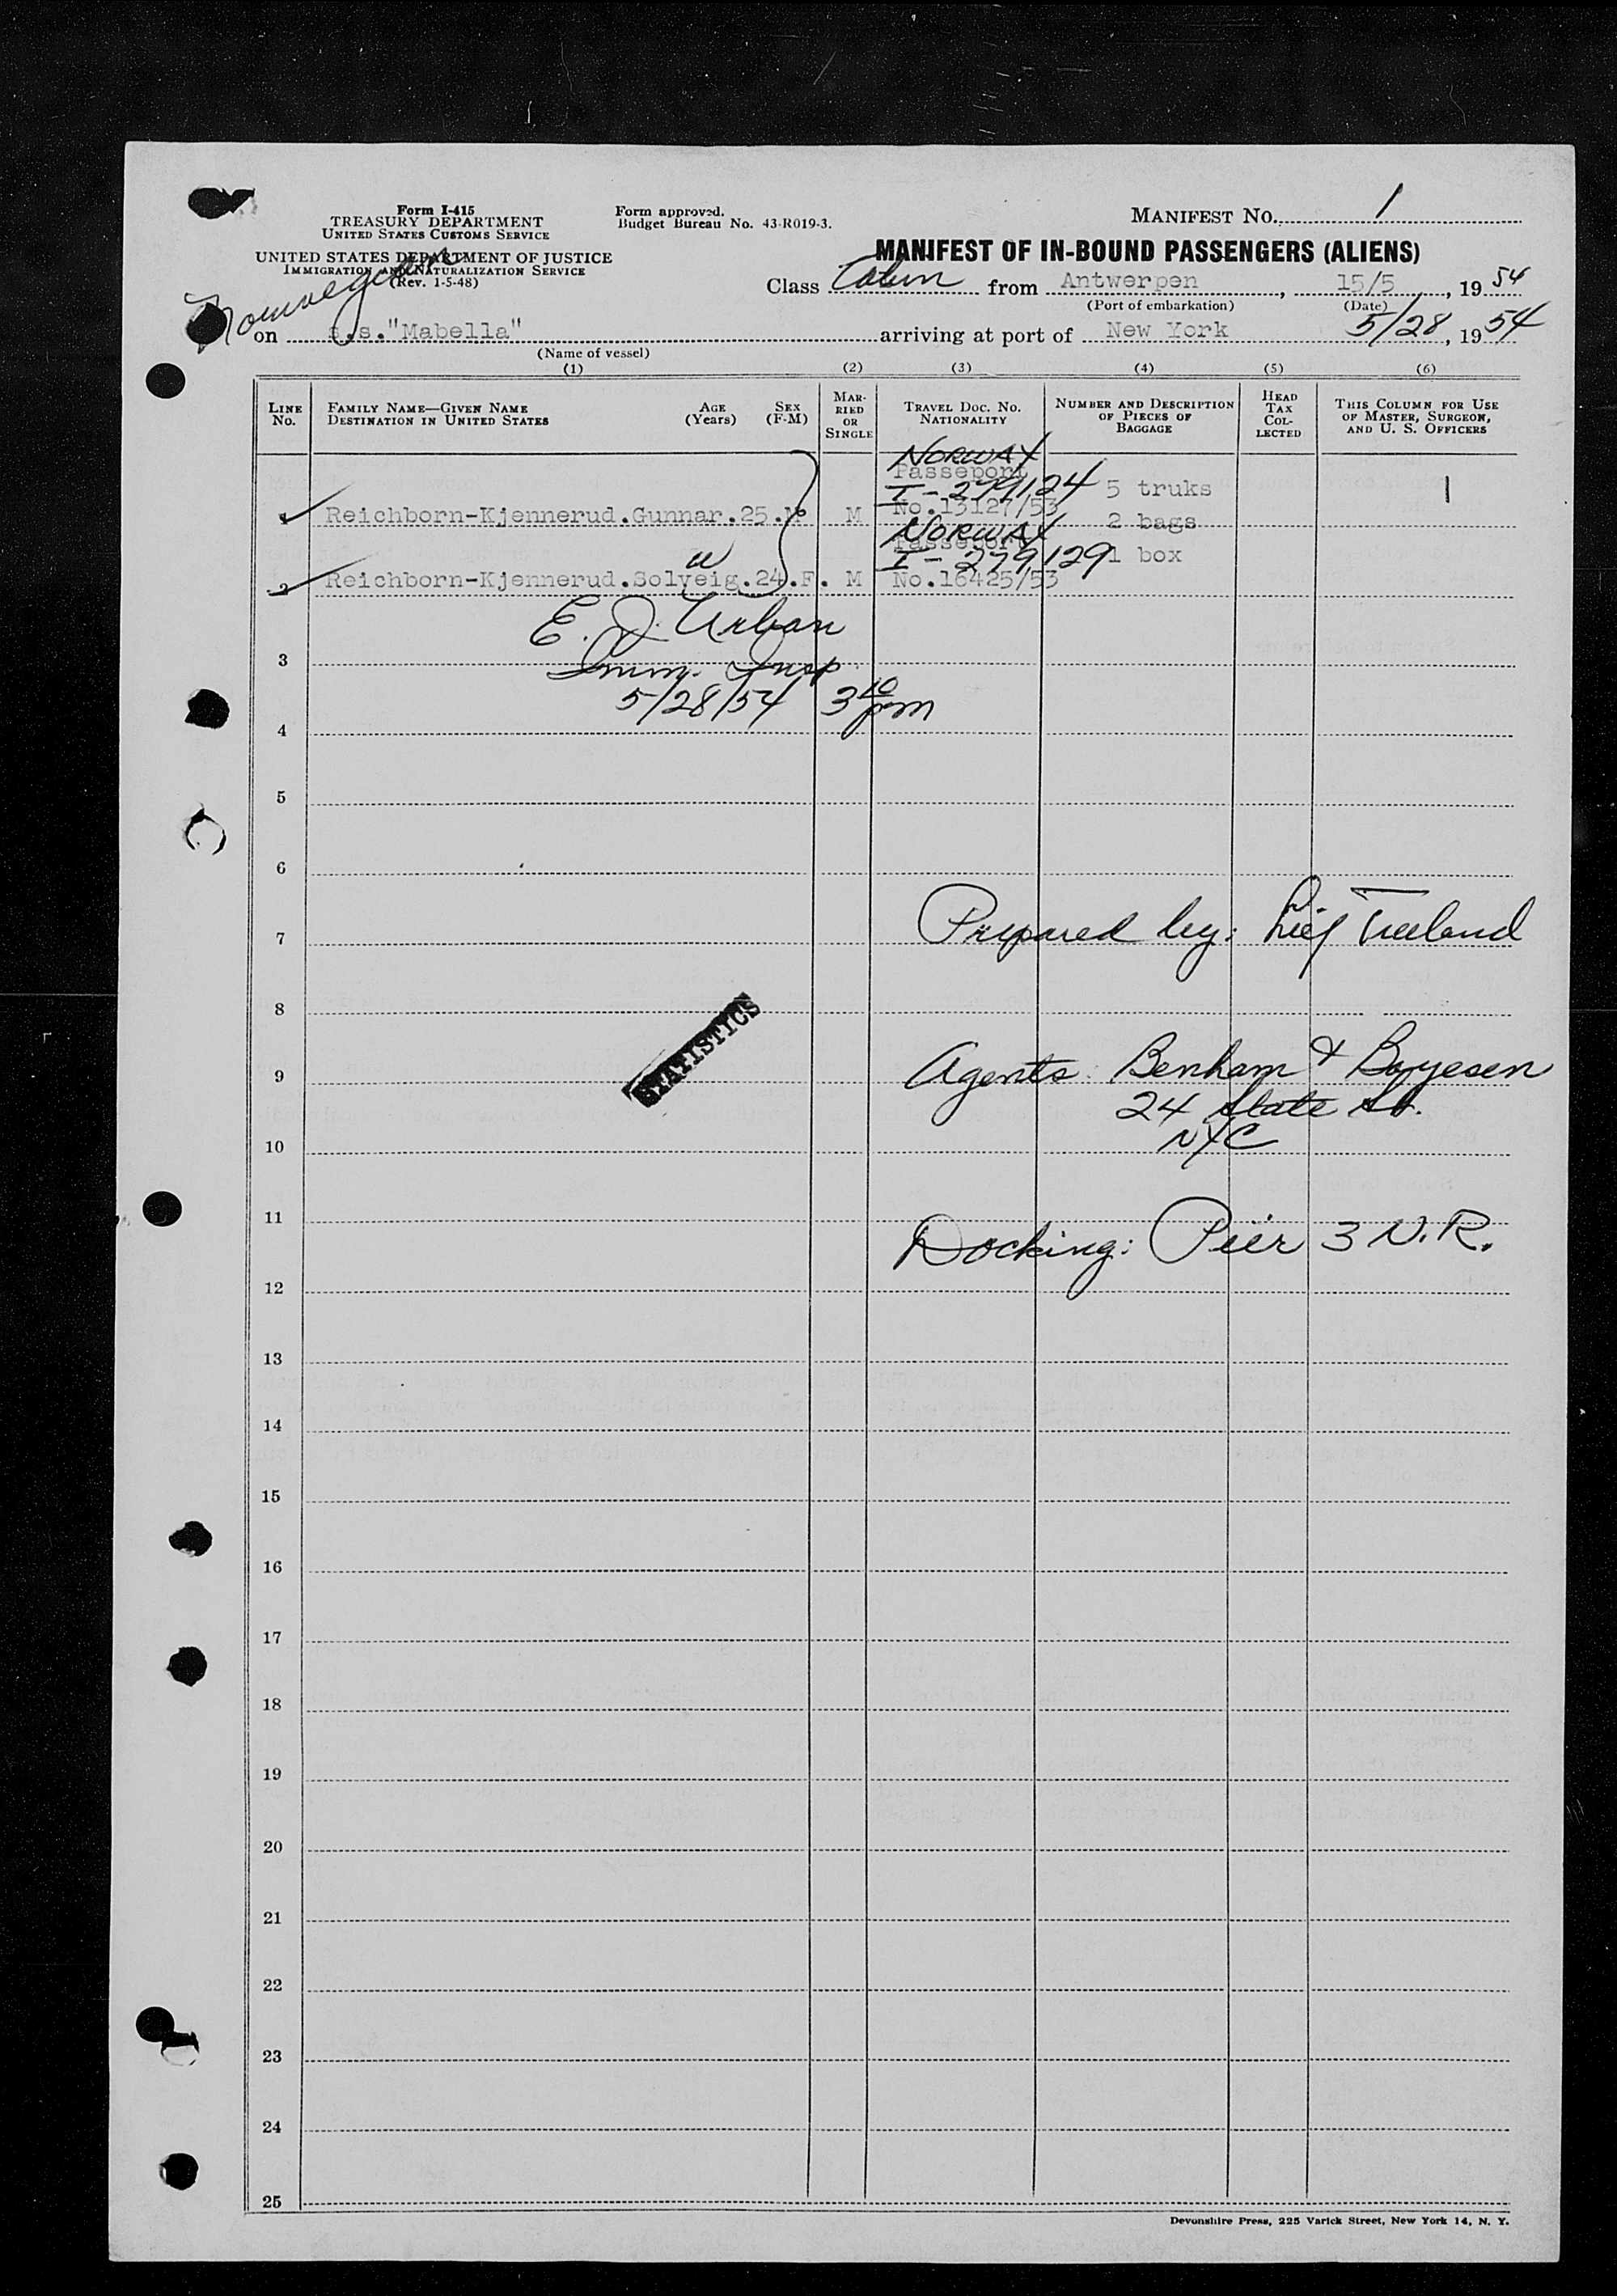 Form I-415
TREASURY DEPARTMENT
UNITED STATES CUSTOMS SERVICE
UNITED STATES DEPARTMENT OF JUSTICE
IMMIGRATION AND NATURALIZATION SERVICE
(Rev. 1-5-48)
Form approved.
Budget Bureau No. 43-R019-3.
MANIFEST No. 1
MANIFEST OF IN-BOUND PASSENGERS (ALIENS)
Norwegian
Class Cabin from Antwerpen, 15/5, 19 54
(Port of embarkation) (Date)
on s.s."Mabella" arriving at port of New York 5/28, 19 54
(Name of vessel)
(1) (2) (3) (4) (5) (6)
LINE No.
FAMILY NAME—GIVEN NAME
DESTINATION IN UNITED STATES
AGE (Years)
SEX (F-M)
MARRIED OR SINGLE
TRAVEL DOC. NO.
NATIONALITY
NUMBER AND DESCRIPTION OF PIECES OF BAGGAGE
HEAD TAX COLLECTED
THIS COLUMN FOR USE OF MASTER, SURGEON, AND U. S. OFFICERS
NORWAY
Passeport
I-279124 5 truks 1
1 Reichborn-Kjennerud.Gunnar.25.M M No.13127/53 2 bags
NORWAY
Passeport
w I-279129 1 box
2 Reichborn-Kjennerud.Solveig.24.F. M No.16425/53
E. J. Urban
3 Imm. Insp.
5/28/54 3 10 pm
4
5
6
7 Prepared by: Leif
8
STATISTICS
9 Agents: Benham & Boyesen
24 State St.
10 NYC
11
Docking: Pier 3 N.R.
12
13
14
15
16
17
18
19
20
21
22
23
24
25
Devonshire Press, 225 Varick Street, New York 14, N. Y.